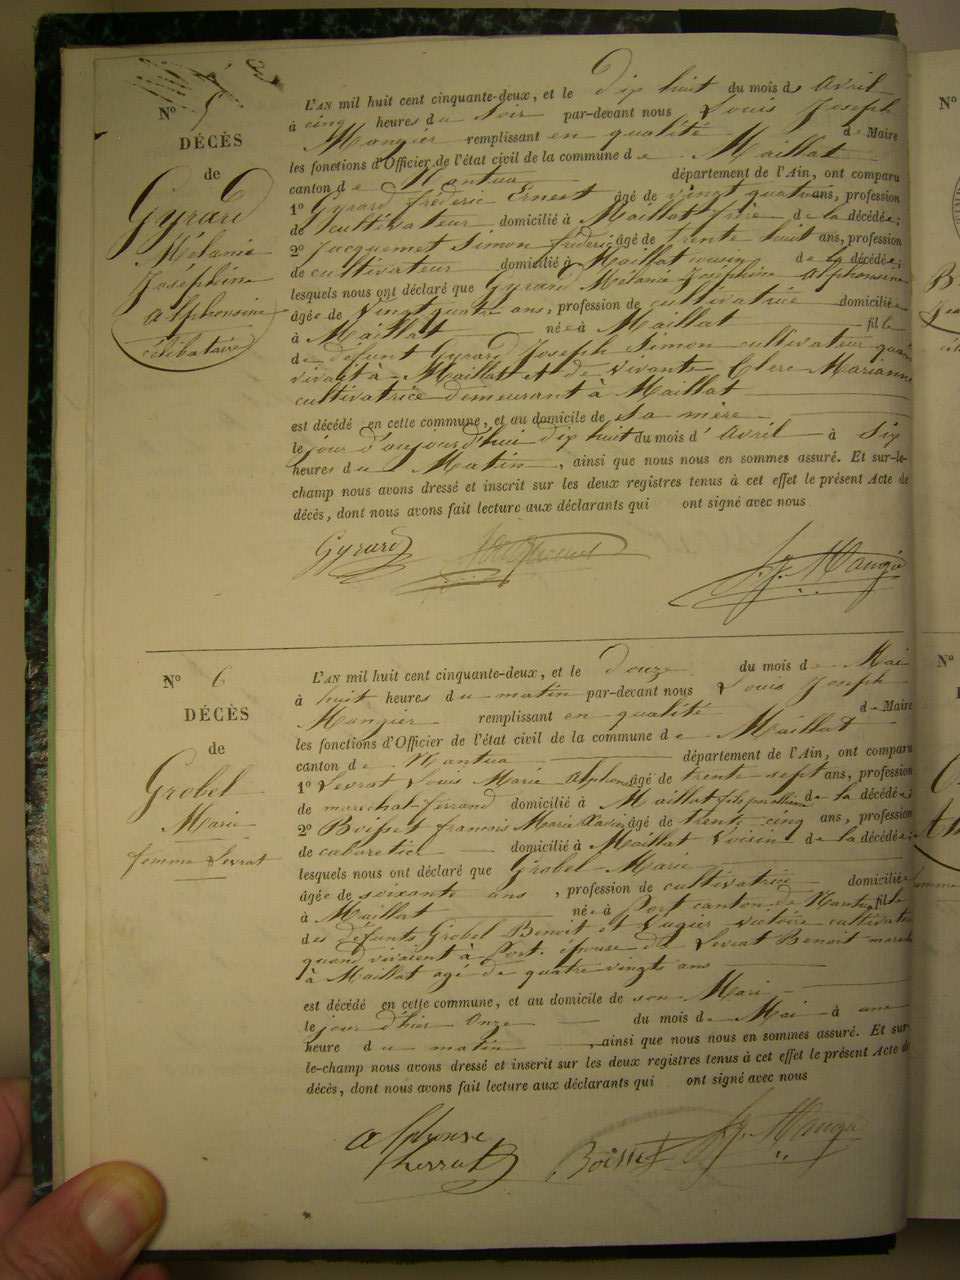 N° 5
DÉCÈS
de
Gyrard
Mélanie
Joséphine
Alphonsine
célibataire
L'AN mil huit cent cinquante-deux, et le dix huit du mois d' Avril
à cinq heures du soir par-devant nous Louis Joseph
Mongier remplissant en qualité de Maire
les fonctions d'Officier de l'état civil de la commune de Maillat
canton de Nantua département de l'Ain, ont comparu
1° Gyrard frédéric Ernest âgé de vingt quatre ans, profession
de cultivateur domicilié à Maillat frère de la décédée;
2° Jacquemet Simon frédéric âgé de trente huit ans, profession
de cultivateur domicilié à Maillat cousin de la décédée;
lesquels nous ont déclaré que Gyrard Mélanie Joséphine Alphonsine
âgée de vingt quatre ans, profession de cultivatrice domiciliée
à Maillat née à Maillat fille
de défunt Gyrard Joseph Simon cultivateur quand
vivait à Maillat et de vivante Clerc Marianne
cultivatrice demeurant à Maillat
est décédé en cette commune, et au domicile de sa mère
le jour d'aujourd'hui dix huit du mois d' Avril à six
heures du Matin, ainsi que nous nous en sommes assuré. Et sur-le-
champ nous avons dressé et inscrit sur les deux registres tenus à cet effet le présent Acte de
décès, dont nous avons fait lecture aux déclarants qui ont signé avec nous
Gyrard
N° 6
DÉCÈS
de
Grobel
Marie
femme Levrat
L'AN mil huit cent cinquante-deux, et le douze du mois de Mai
à huit heures du matin par-devant nous Louis Joseph
Mongier remplissant en qualité de Maire
les fonctions d'Officier de l'état civil de la commune de Maillat
canton de Nantua département de l'Ain, ont comparu
1° Levrat Louis Marie Alphonse âgé de trente sept ans, profession
de marechal ferrand domicilié à Maillat fils par alliance de la décédée;
2° Boisset francois Marie Xavier âgé de trente cinq ans, profession
de cabaretier domicilié à Maillat voisin de la décédée;
lesquels nous ont déclaré que Grobel Marie
âgée de soixante ans, profession de cultivatrice domiciliée
à Maillat née à Port canton de Nantua fille
des défunts Grobel Benoit et Victoire cultivateurs
quand vivaient à Port. épouse de Levrat Benoit
à Maillat agé de quatre vingts ans
est décédé en cette commune, et au domicile de son Mari
le jour d'hier Onze du mois de Mai à une
heure du matin, ainsi que nous nous en sommes assuré. Et sur
le-champ nous avons dressé et inscrit sur les deux registres tenus à cet effet le présent Acte de
décès, dont nous avons fait lecture aux déclarants qui ont signé avec nous
Alphonse
Levrat Boisset